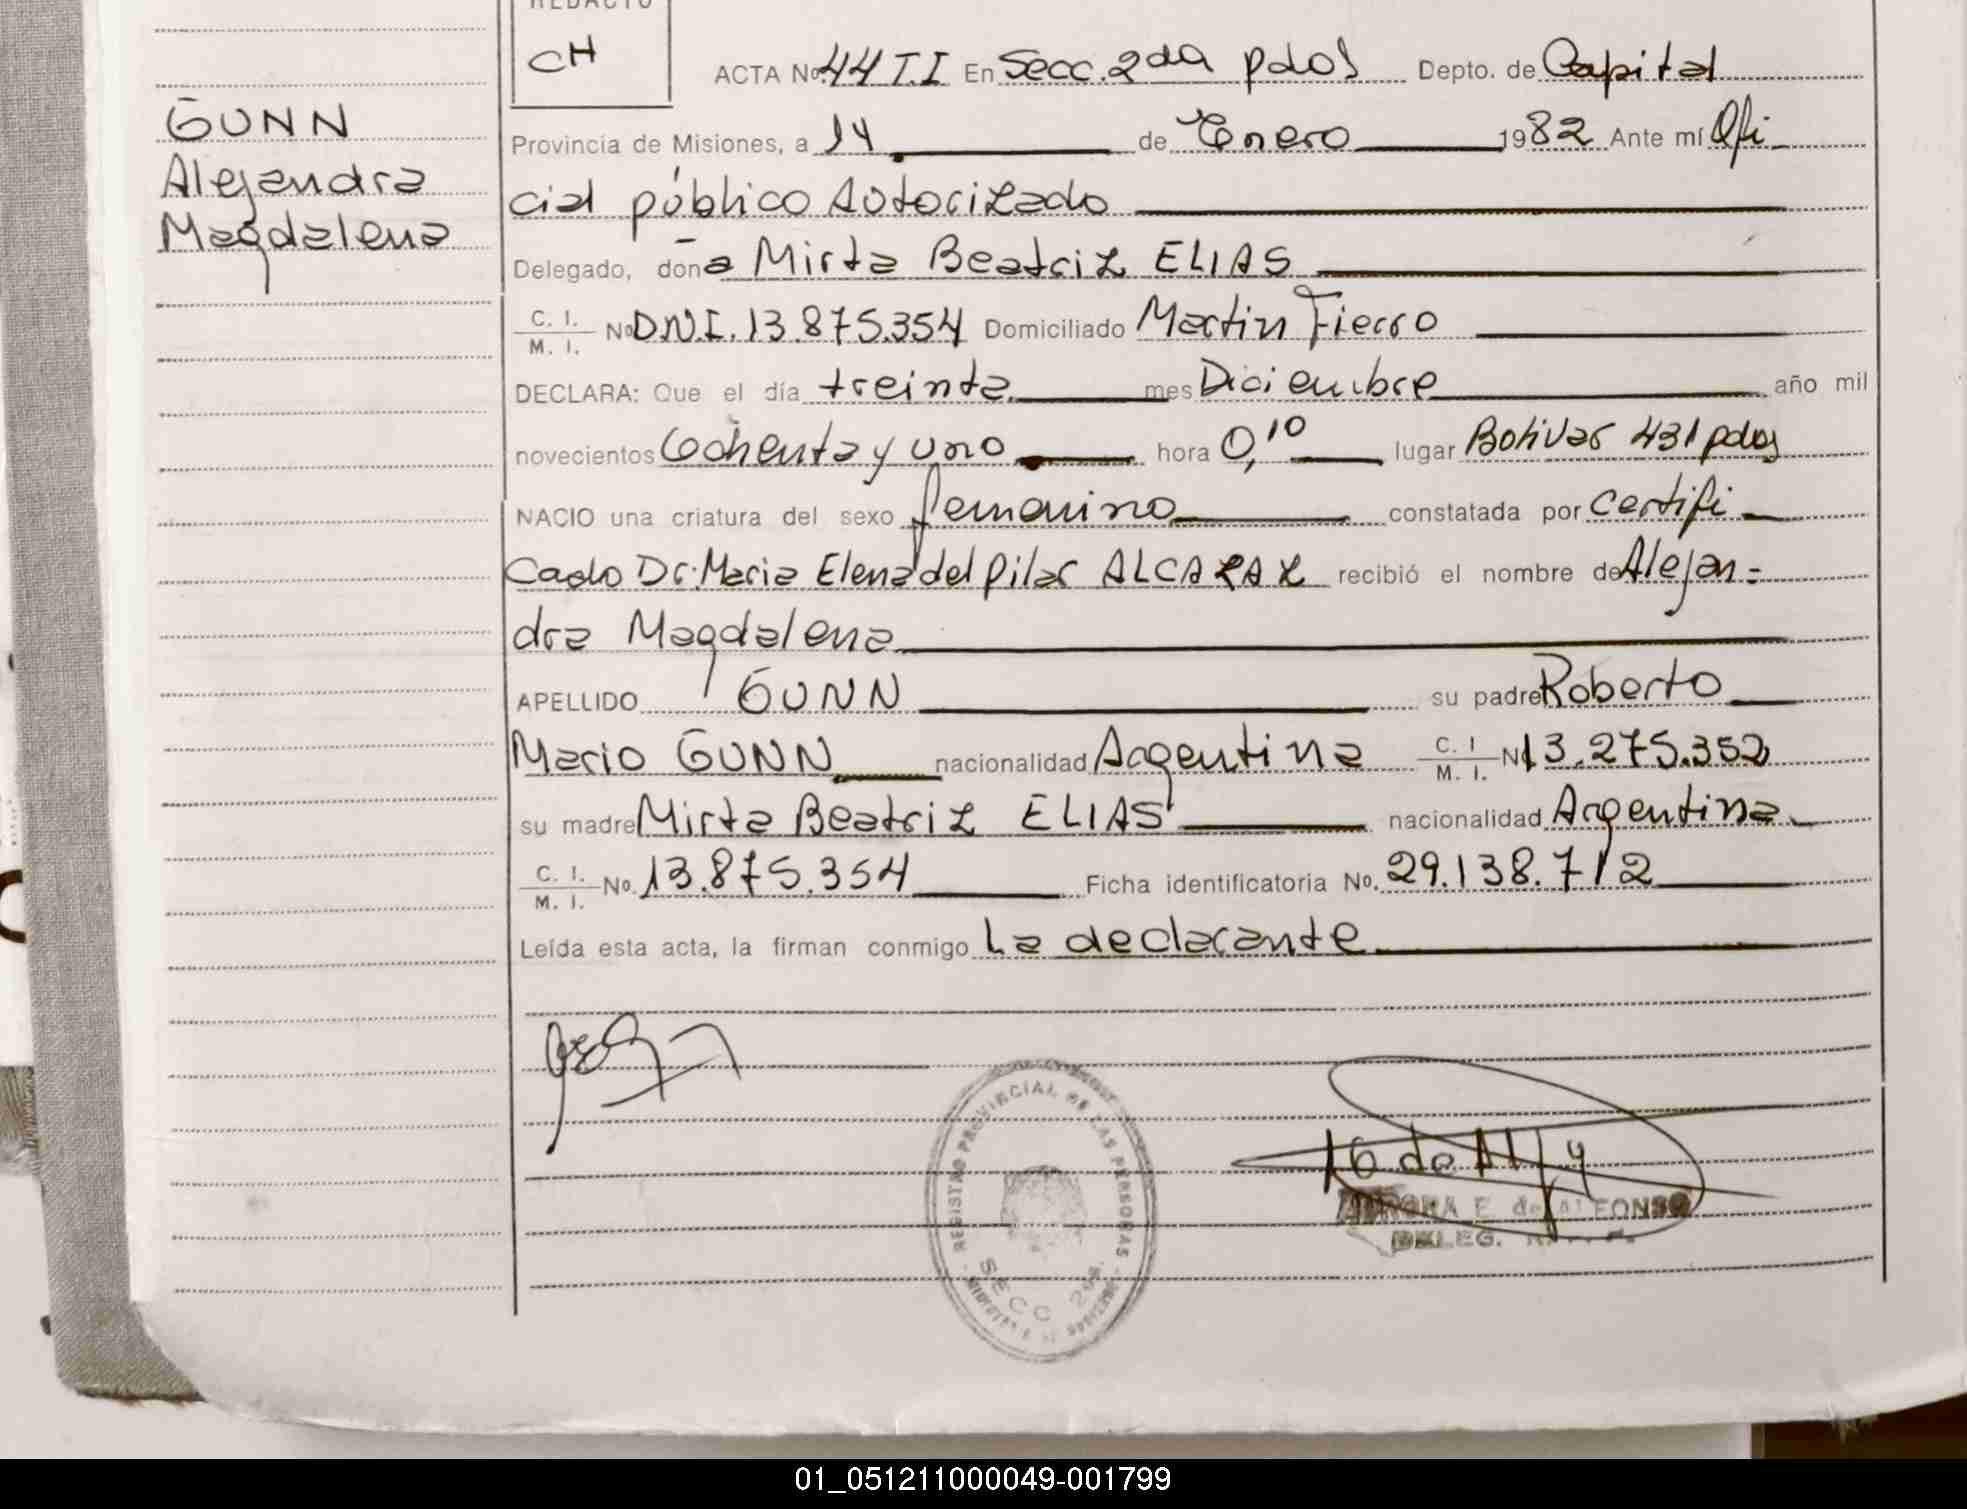 REDACTO
CH
GUNN
Alejandra
Magdalena
ACTA No. 44 T.I En Secc. 2da pdas Depto. de Capital
Provincia de Misiones, a 14 de Enero 1982 Ante mí Ofi
cial público Autorizado
Delegado, doña Mirta Beatriz ELIAS
C. I. / M. I. No D.N.I. 13.875.354 Domiciliado Martin Fierro
DECLARA: Que el día treinta mes Diciembre año mil
novecientos Ochenta y uno hora 0,10 lugar Bolivar 431 pdas
NACIO una criatura del sexo femenino constatada por certifi
cado Dr. Maria Elena del Pilar ALCARAZ recibió el nombre de Alejan-
dra Magdalena
APELLIDO GUNN su padre Roberto
Mario GUNN nacionalidad Argentina C. I / M. I. No 13.275.352
su madre Mirta Beatriz ELIAS nacionalidad Argentina
C. I. / M. I. No. 13.875.354 Ficha identificatoria No. 29.138.712
Leída esta acta, la firman conmigo La declarante
REGISTRO PROVINCIAL DE LAS PERSONAS
SECC 2da.
E. de ALFONSO
DELEG.
01_051211000049-001799